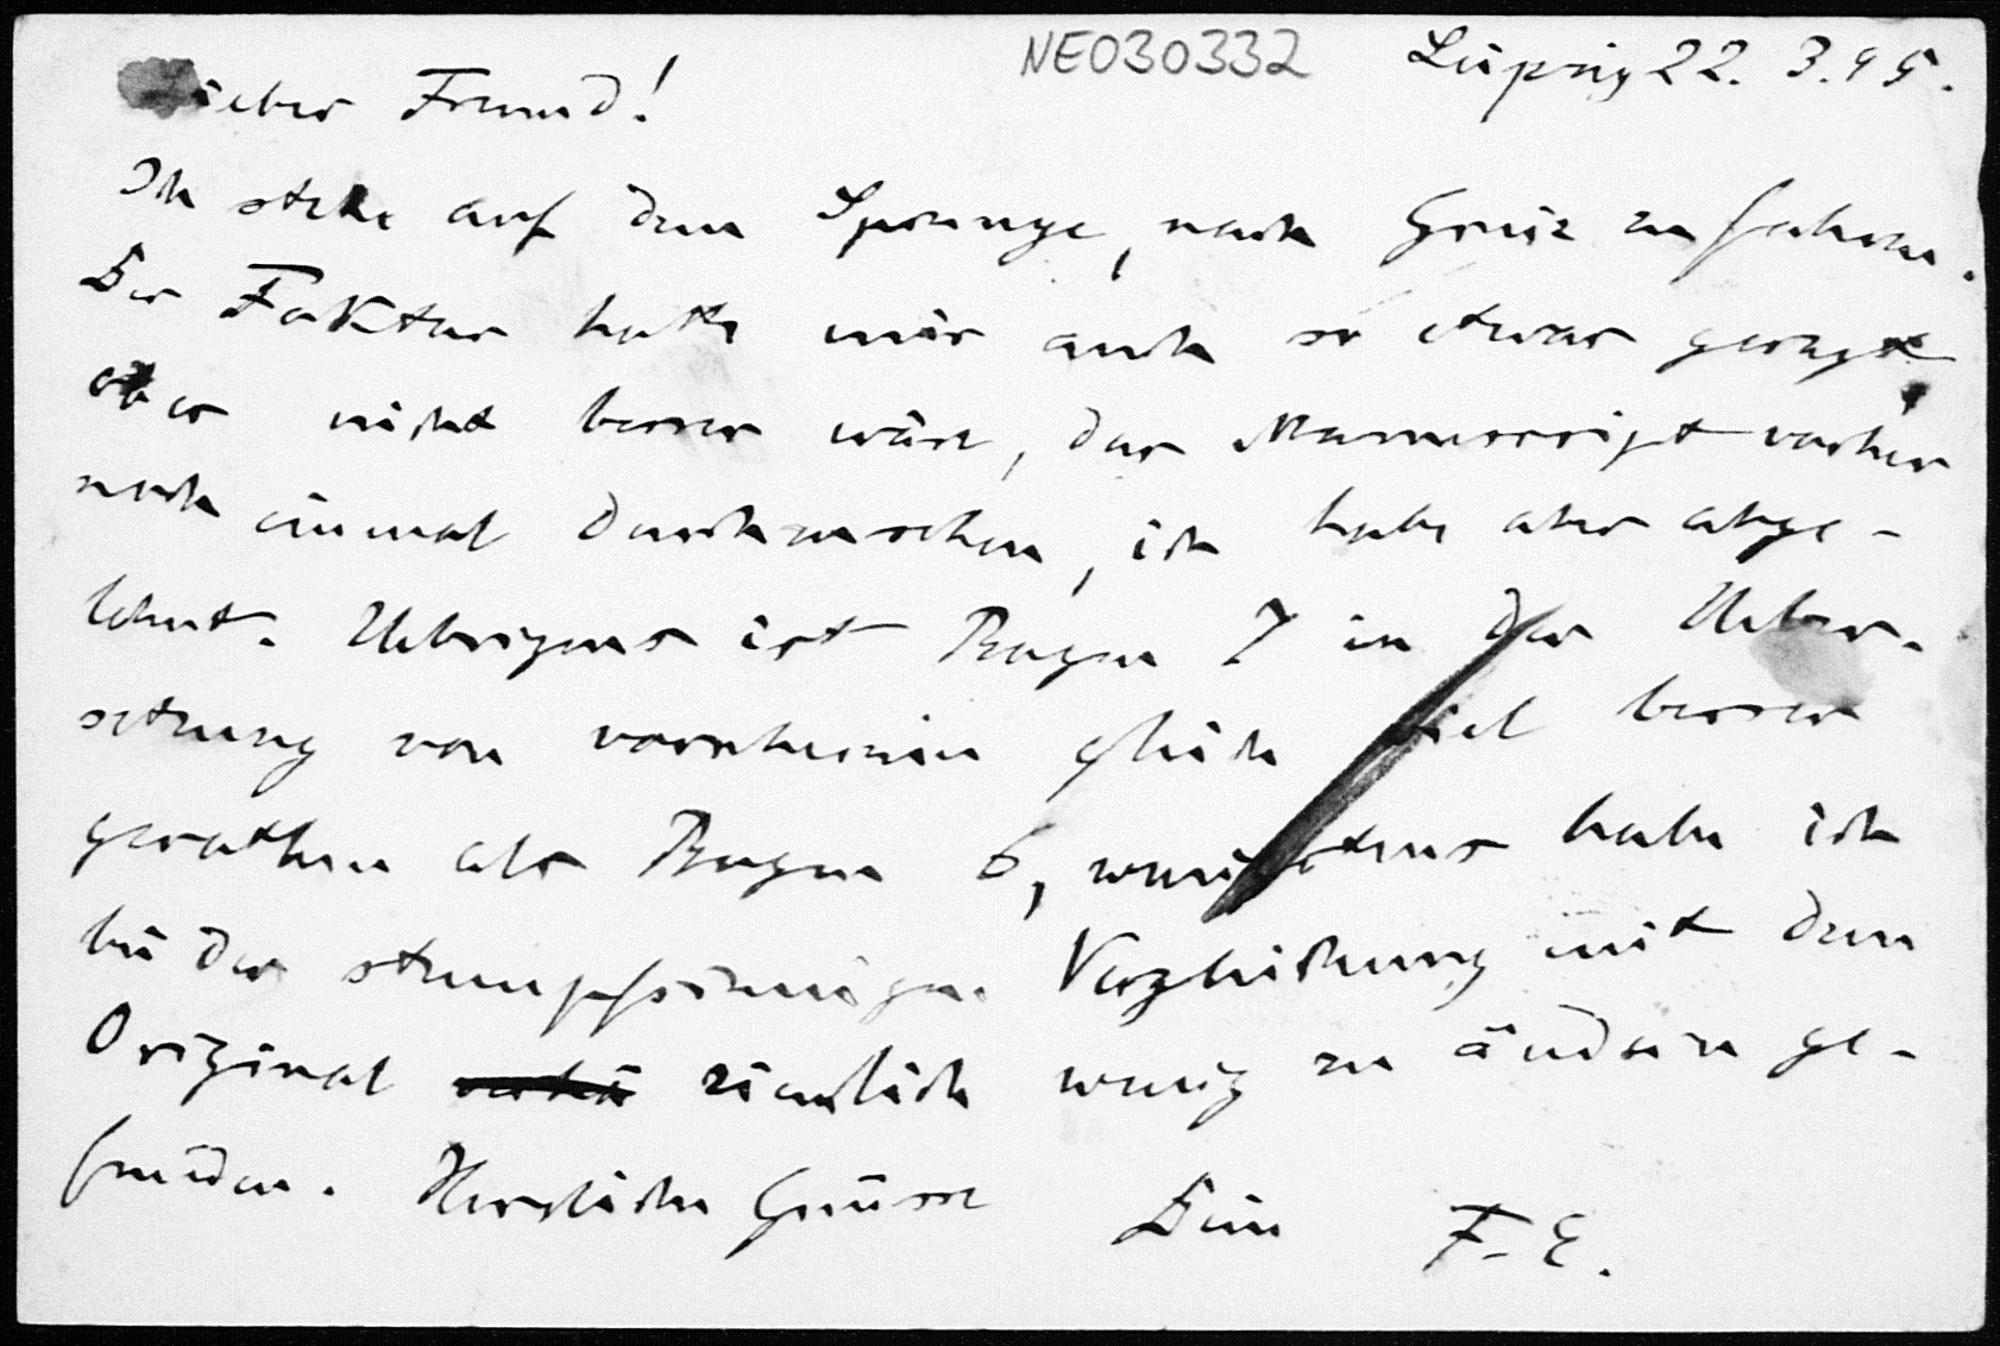 NE030332
Leipzig 22. 3. 95.
Lieber Freund!
Ich stehe auf dem Sprunge, nach Greiz zu fahren.
Der Faktor hatte mir auch so etwas gesagt
ob es nicht besser wäre, das Manuscript vorher
noch einmal durchzusehen, ich habe aber abge-
lehnt. Uebrigens ist Bogen 7 in der Ueber-
setzung von vornherein gleich viel besser
gerathen als Bogen 6, wenigstens habe ich
bei der stumpfsinnigen Vergleichung mit dem
Original ziemlich wenig zu ändern ge-
funden. Herzliche Grüsse Dein F. E.